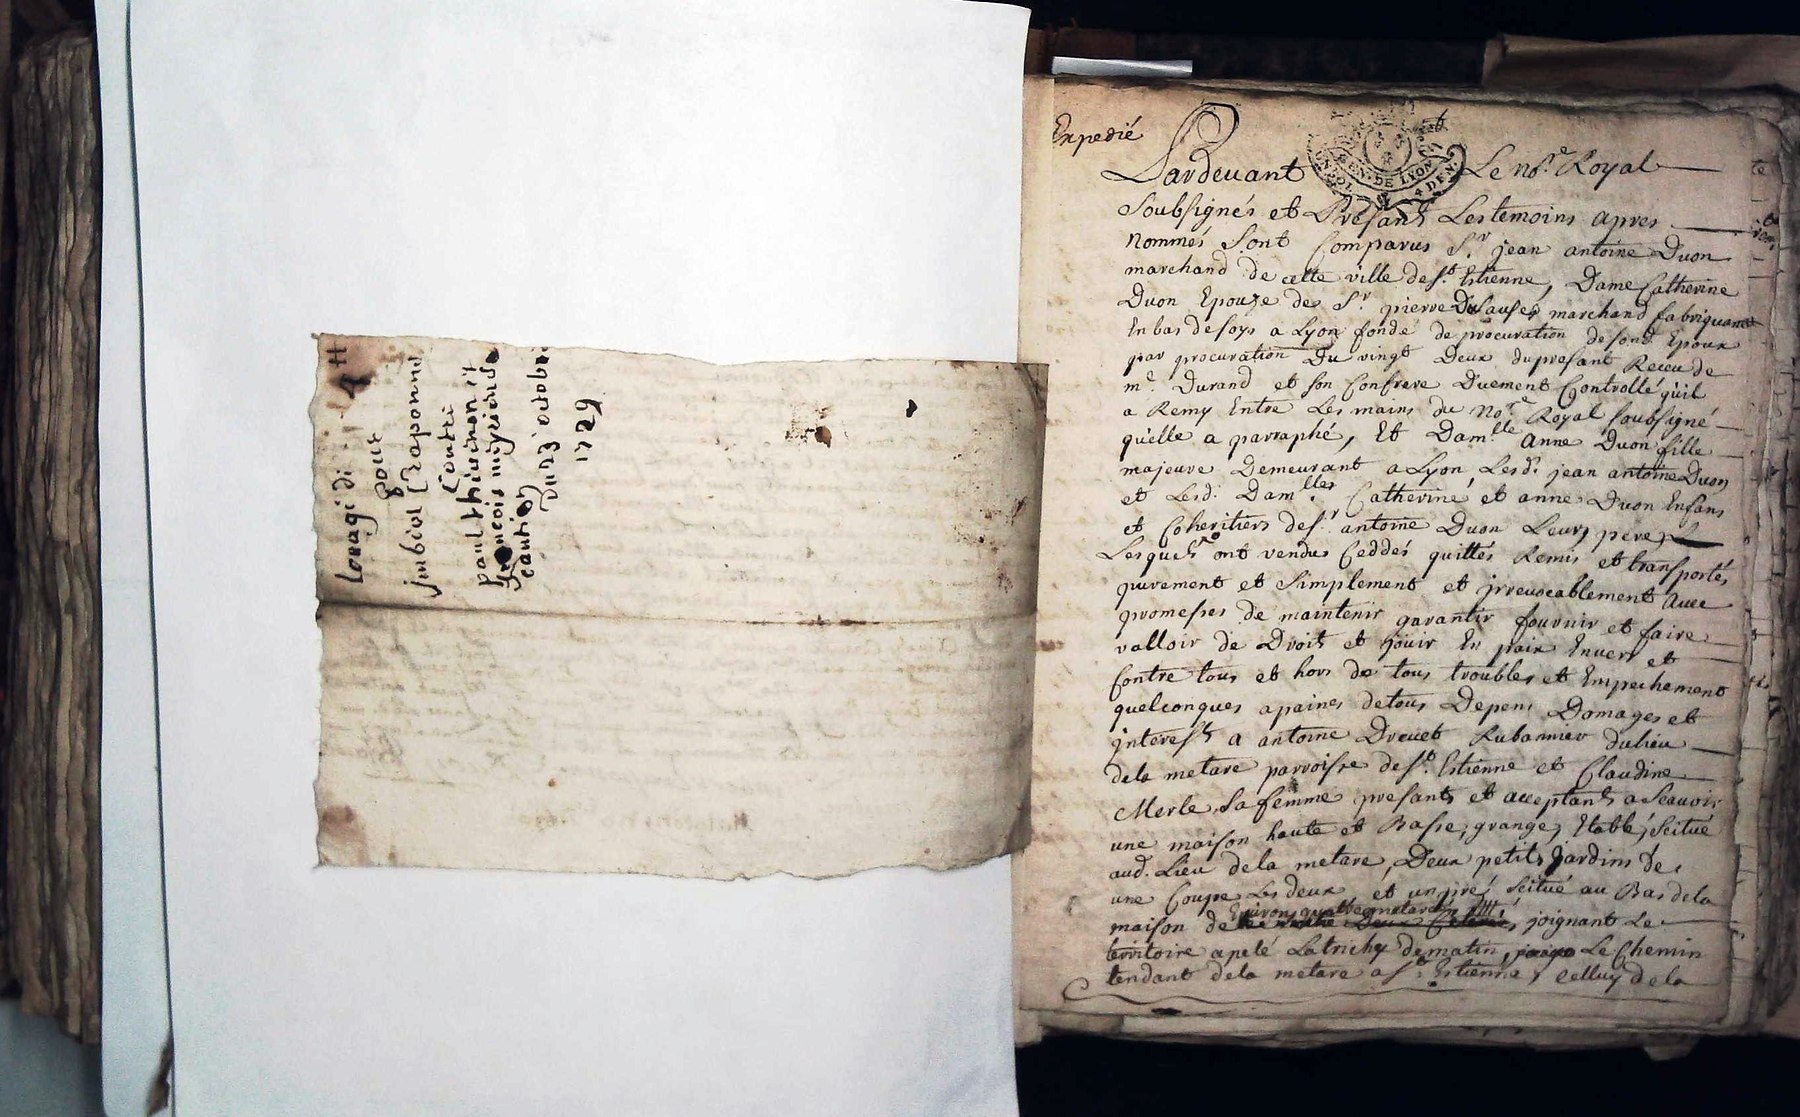 Louagi di
pour
jmbiol Craponne
Contre
paul thiuenon et
francois meyrieu sa
caution
Du 23 octobre
1729
Expedié
Pardeuant Le no.re Royal
GEN. DE LYON 4 DEN.
Soubsignés et Présants Les temoins apres
nommés Sont Comparus S.r jean antoine Duon
marchand de cette ville de s.t Estienne, Dame Catherine
Duon Epouze de S.r pierre Dusauses marchand fabriquant
En bas de soye a Lyon fondé de procuration de sond. Epoux
par procuration Du vingt Deux du presant Receue de
m.e Durand et son Confrere Duement Controllé quil
a Remy Entre Les mains du no.re Royal soubsigné
quelle a parraphé, Et Dam.lle anne Duon fille
majeure Demeurant a Lyon Lesd. jean antoine Duon
et Lesd. Dam.lles Catherine et anne Duon Enfans
et Coheritiers de s.r antoine Duon Leurs pere
Lesquels ont vendus Ceddés quittés Remis et transportés
purement et Simplement et jrreuocablement Auec
promesses de maintenir garantir fournir et faire
valloir de Droit et jouir En paix Enuers et
Contre tous et hors de tous troubles et Empechement
quelconques apaines de tous Depens Domages et
jnterests a antoine Dreuet Rubannier du lieu
de la metare parroisse de s.t Estienne et Claudine
Merle Sa femme presants et acceptants a Scauoir
une maison haute et Basse, grange, Etable, Scitué
aud. Lieu de la metare, Deux petits Jardins de
une Coupe Les deux et un pré scitué au Bas de la
maison de Enuirons quatre metardes joignant Le
territoire apelé Latrichy de matin, Le Chemin
tendant de la metare a s.t Estienne, celluy de la